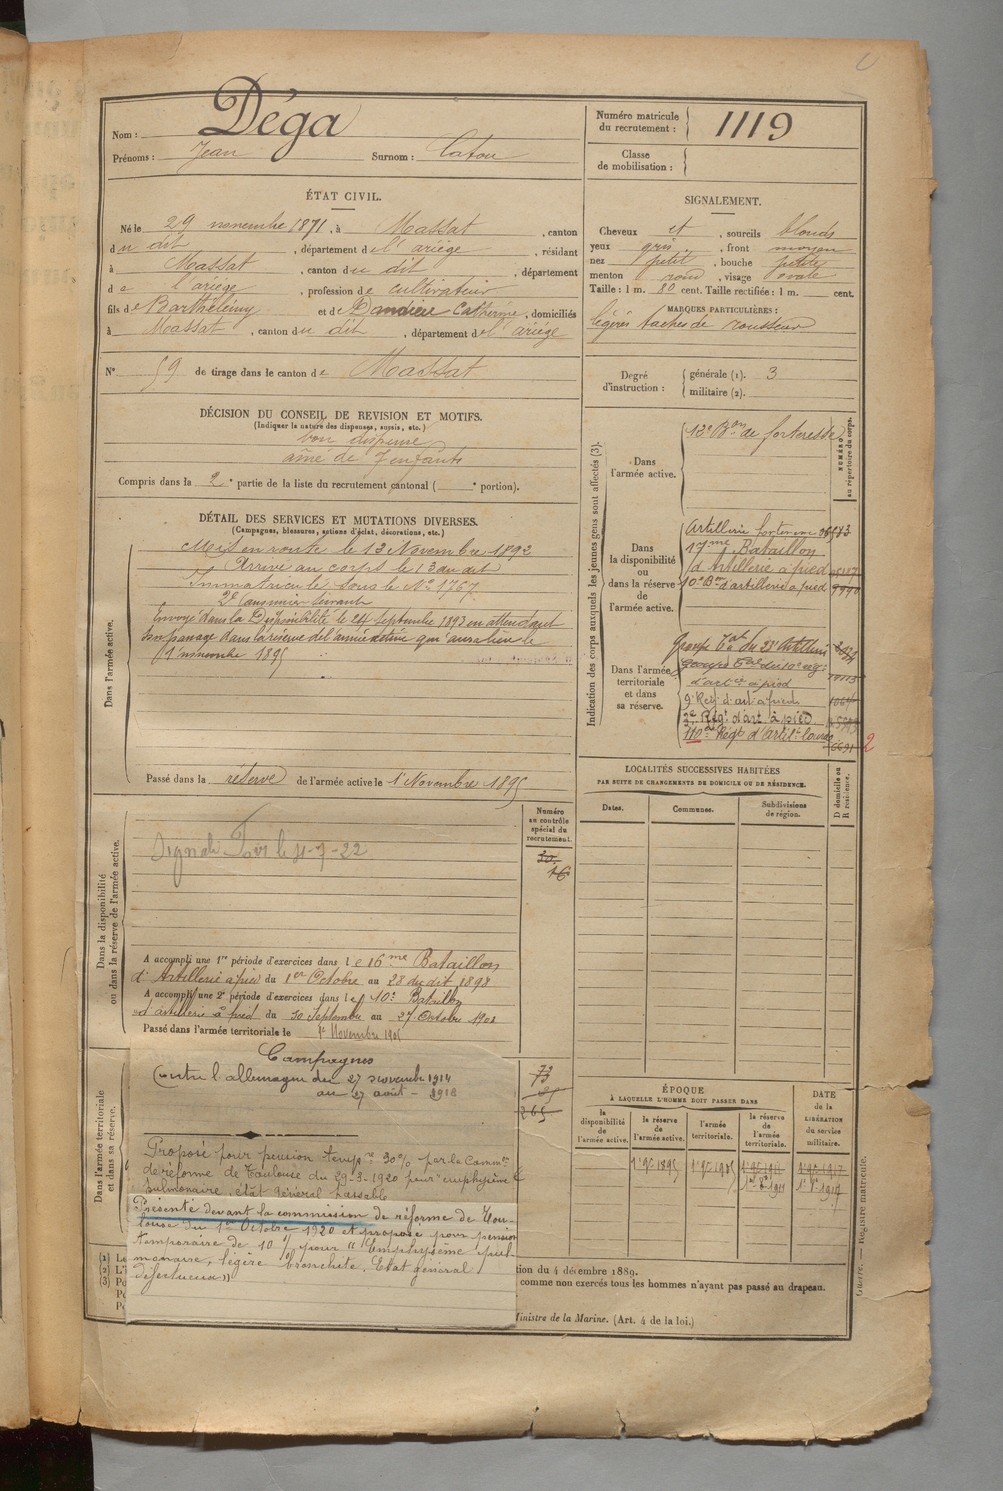 Nom : Déga
Prénoms : Jean Surnom : Catou
Numéro matricule du recrutement : 1119
Classe de mobilisation :
ÉTAT CIVIL.
Né le 29 novembre 1871, à Massat, canton
du dit, département de l'ariége, résidant
à Massat, canton du dit, département
de l'ariége, profession de cultivateur
fils de Barthélémy et de Dandieu Catherine, domiciliés
à Massat, canton du dit, département de l'ariége
N° 59 de tirage dans le canton de Massat
SIGNALEMENT.
Cheveux et, sourcils blonds
yeux gris, front moyen
nez petit, bouche petite
menton rond, visage ovale
Taille : 1 m. 80 cent. Taille rectifiée : 1 m. cent.
MARQUES PARTICULIÈRES :
légères taches de rousseur
Degré d'instruction : générale (1). 3
militaire (2).
DÉCISION DU CONSEIL DE REVISION ET MOTIFS.
(Indiquer la nature des dispenses, sursis, etc.)
bon dispensé
aîné de 7 enfants
Compris dans la 2e partie de la liste du recrutement cantonal ( e portion).
DÉTAIL DES SERVICES ET MUTATIONS DIVERSES.
(Campagnes, blessures, actions d'éclat, décorations, etc.)
Dans l'armée active.
Mis en route le 12 Novembre 1892
Arrivé au corps le 13 du dit
Immatriculé sous le N° 1767
2e Canonnier Servant
Envoyé dans la Disponibilité le 24 Septembre 1893 en attendant
son passage dans la réserve de l'armée active qui aura lieu le
1er novembre 1895
Passé dans la réserve de l'armée active le 1er Novembre 1895
Indication des corps auxquels les jeunes gens sont affectés (3).
NUMÉRO au répertoire du corps.
Dans l'armée active.
12e Bon de forteresse
Dans la disponibilité ou dans la réserve de l'armée active.
Artillerie forteresse
17me Bataillon
d'Artillerie à pied
10e Bon d'artillerie à pied 9990
Dans l'armée territoriale et dans sa réserve.
Groupe Tal du 23e Artillerie
groupe Tal du 10e reg
d'artie à pied
9e Reg. d'art. à pied
2e Régt d'art à pied
110e Régt d'Artil. lourde 2
LOCALITÉS SUCCESSIVES HABITÉES
PAR SUITE DE CHANGEMENTS DE DOMICILE OU DE RÉSIDENCE.
Dates. Communes. Subdivisions de région. D domicile ou R résidence.
Dans la disponibilité ou dans la réserve de l'armée active.
Numéro au contrôle spécial du recrutement.
16
A accompli une 1re période d'exercices dans le 16me Bataillon
d'Artillerie à pied du 1er Octobre au 28 du dit 1898
A accompli une 2e période d'exercices dans le 10e Bataillon
d'artillerie à pied du 30 Septembre au 27 Octobre 1901
Passé dans l'armée territoriale le 1er Novembre 1905
Dans l'armée territoriale et dans sa réserve.
Campagnes
Contre l'allemagne du 27 novembre 1914
au 27 août - 1918
265
Proposé pour pension tempre 30% par la Common
de réforme de Toulouse du 29-3-1920 pour emphysème
pulmonaire, état général passable
Présenté devant la commission de réforme de Tou-
louse du 1er Octobre 1920 et proposé pour pension
temporaire de 10% pour "Emphysème pul-
monaire, légère bronchite, Etat général
défectueux"
ÉPOQUE
À LAQUELLE L'HOMME DOIT PASSER DANS
DATE de la LIBÉRATION du service militaire.
la disponibilité de l'armée active. la réserve de l'armée active. l'armée territoriale. la réserve de l'armée territoriale.
1er 9e 1895 1er 9e 1905 1er 9e 1911 1er 9e 1917
tion du 4 décembre 1889.
comme non exercés tous les hommes n'ayant pas passé au drapeau.
Ministre de la Marine. (Art. 4 de la loi.)
Guerre. — Registre matricule.